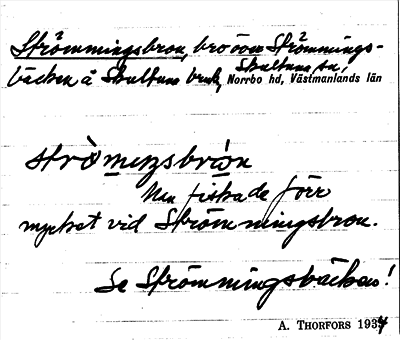 Strömmingsbron, bro över Strömmings-
bäcken å Skultuna bruk, Skultuna sn, Norrbo hd, Västmanlands län
strò̀mıŋsbrón
Man fiskade förr
mycket vid Strömmingsbron.
Se Strömmingsbäcken!
A. THORFORS 1934